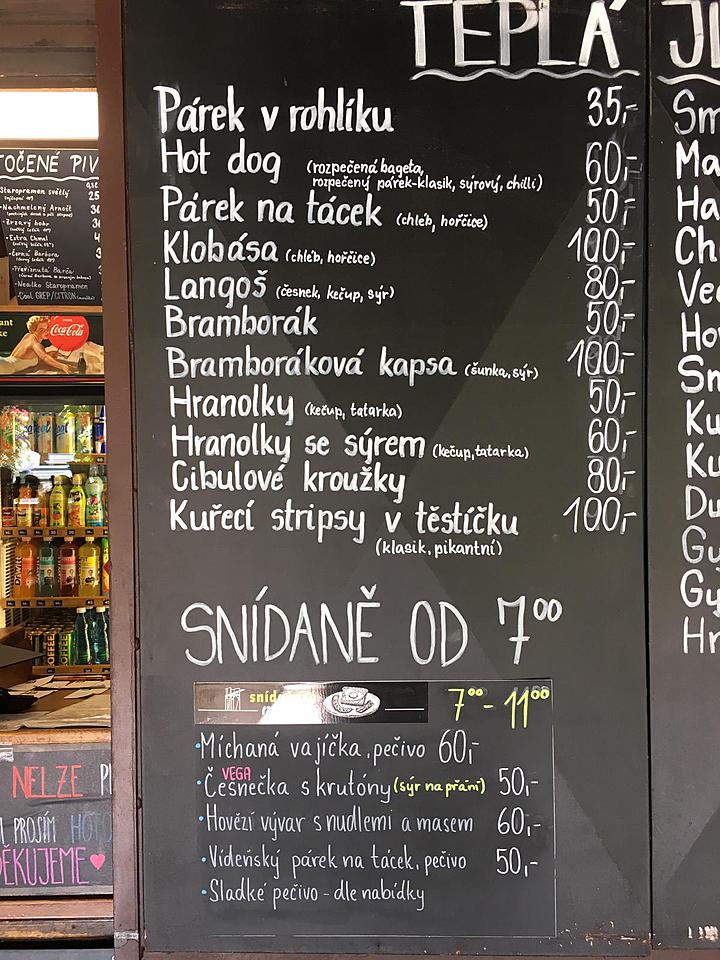 TEPLÁ
Párek v rohlíku 35,-
Hot dog (rozpečená bageta, 60,-
rozpečený párek-klasik, sýrový, chilli)
Párek na tácek (chléb, hořčice) 50,-
Klobása (chléb, hořčice) 100,-
Langoš (česnek, kečup, sýr) 80,-
Bramborák 50,-
Bramboráková kapsa (šunka, sýr) 100,-
Hranolky (kečup, tatarka) 50,-
Hranolky se sýrem (kečup, tatarka) 60,-
Cibulové kroužky 80,-
Kuřecí stripsy v těstíčku 100,-
(klasik, pikantní)
SNÍDANĚ OD 7⁰⁰
7⁰⁰- 11⁰⁰
•Míchaná vajíčka, pečivo 60,-
VEGA
•Česnečka s krutóny (sýr na přání) 50,-
•Hovězí vývar s nudlemi a masem 60,-
•Vídeňský párek na tácek, pečivo 50,-
•Sladké pečivo - dle nabídky
TOČENÉ PIV
Staropramen světlý
Nachmelený Arnošt
Extra Chmel
Černá Barbora
Nealko Staropramen
Cool GREP/CITRON
Coca-Cola
NELZE
PROSÍM HOTO
ĚKUJEME
JI
Sm
Ma
Ha
Ch
Ve
Ho
Sm
Ku
Ku
Du
Gu
Gu
Hr